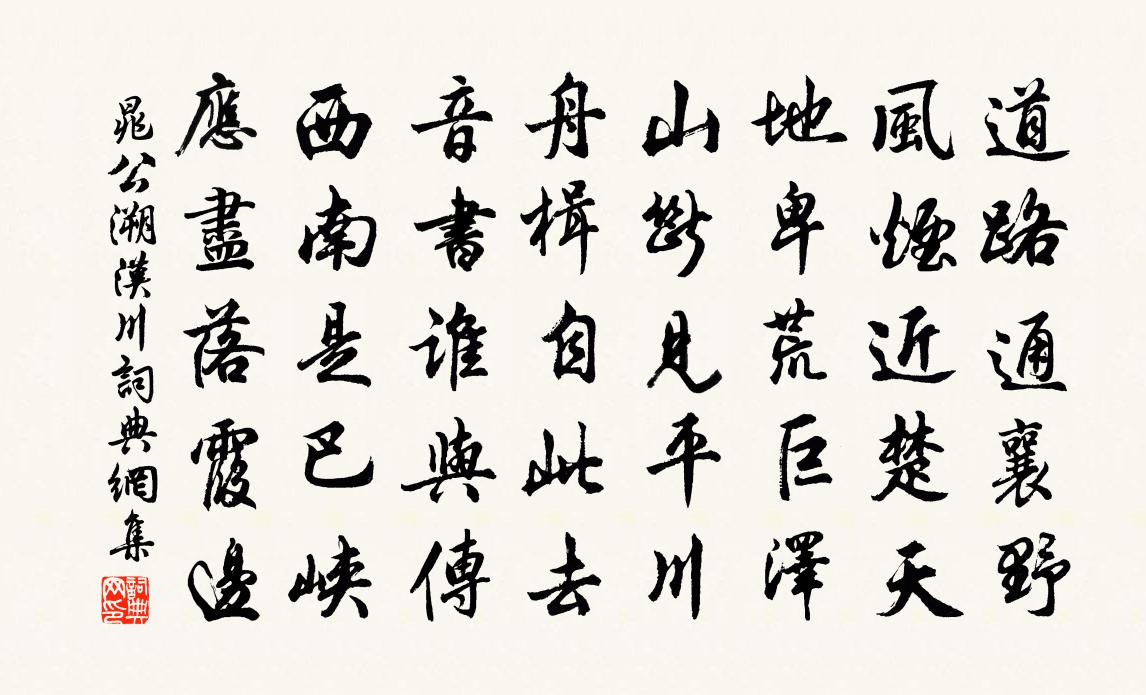 道路通襄野
風煙近楚天
地卑荒巨澤
山斷見平川
舟楫自此去
音書誰與傳
西南是巴峽
應盡落霞邊
晁公溯漢川詞典網集
詞典网印